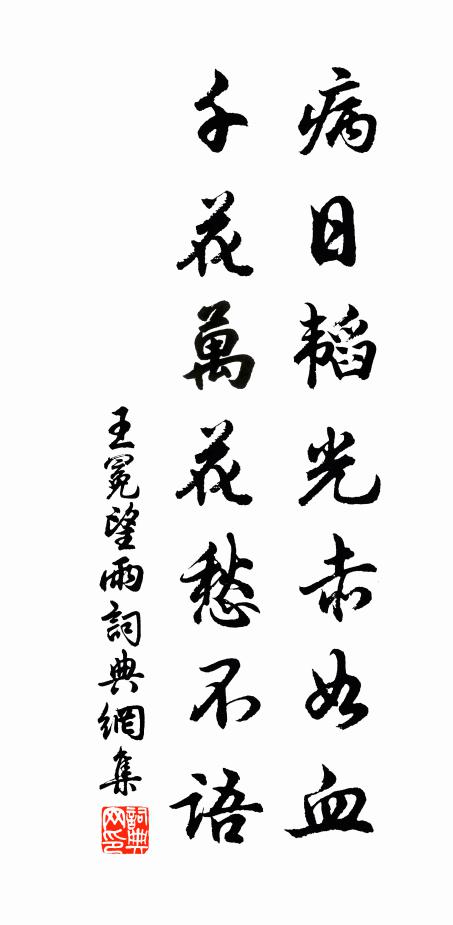 病日韬光赤如血
千花萬花愁不語
王冕望雨詞典網集
詞典网印